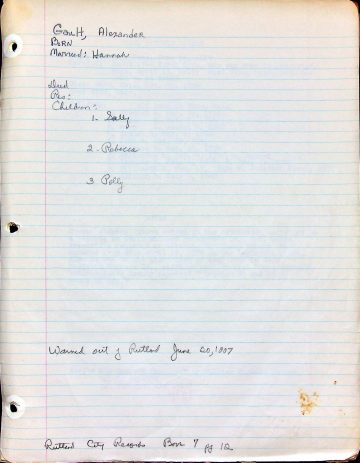 Gault, Alexander
Born
Married: Hannah
Died
Res:
Children:
1. Sally
2. Rebecca
3 Polly
Warned out of Rutland June 20, 1807
Rutland City Records Book 7 pg 12